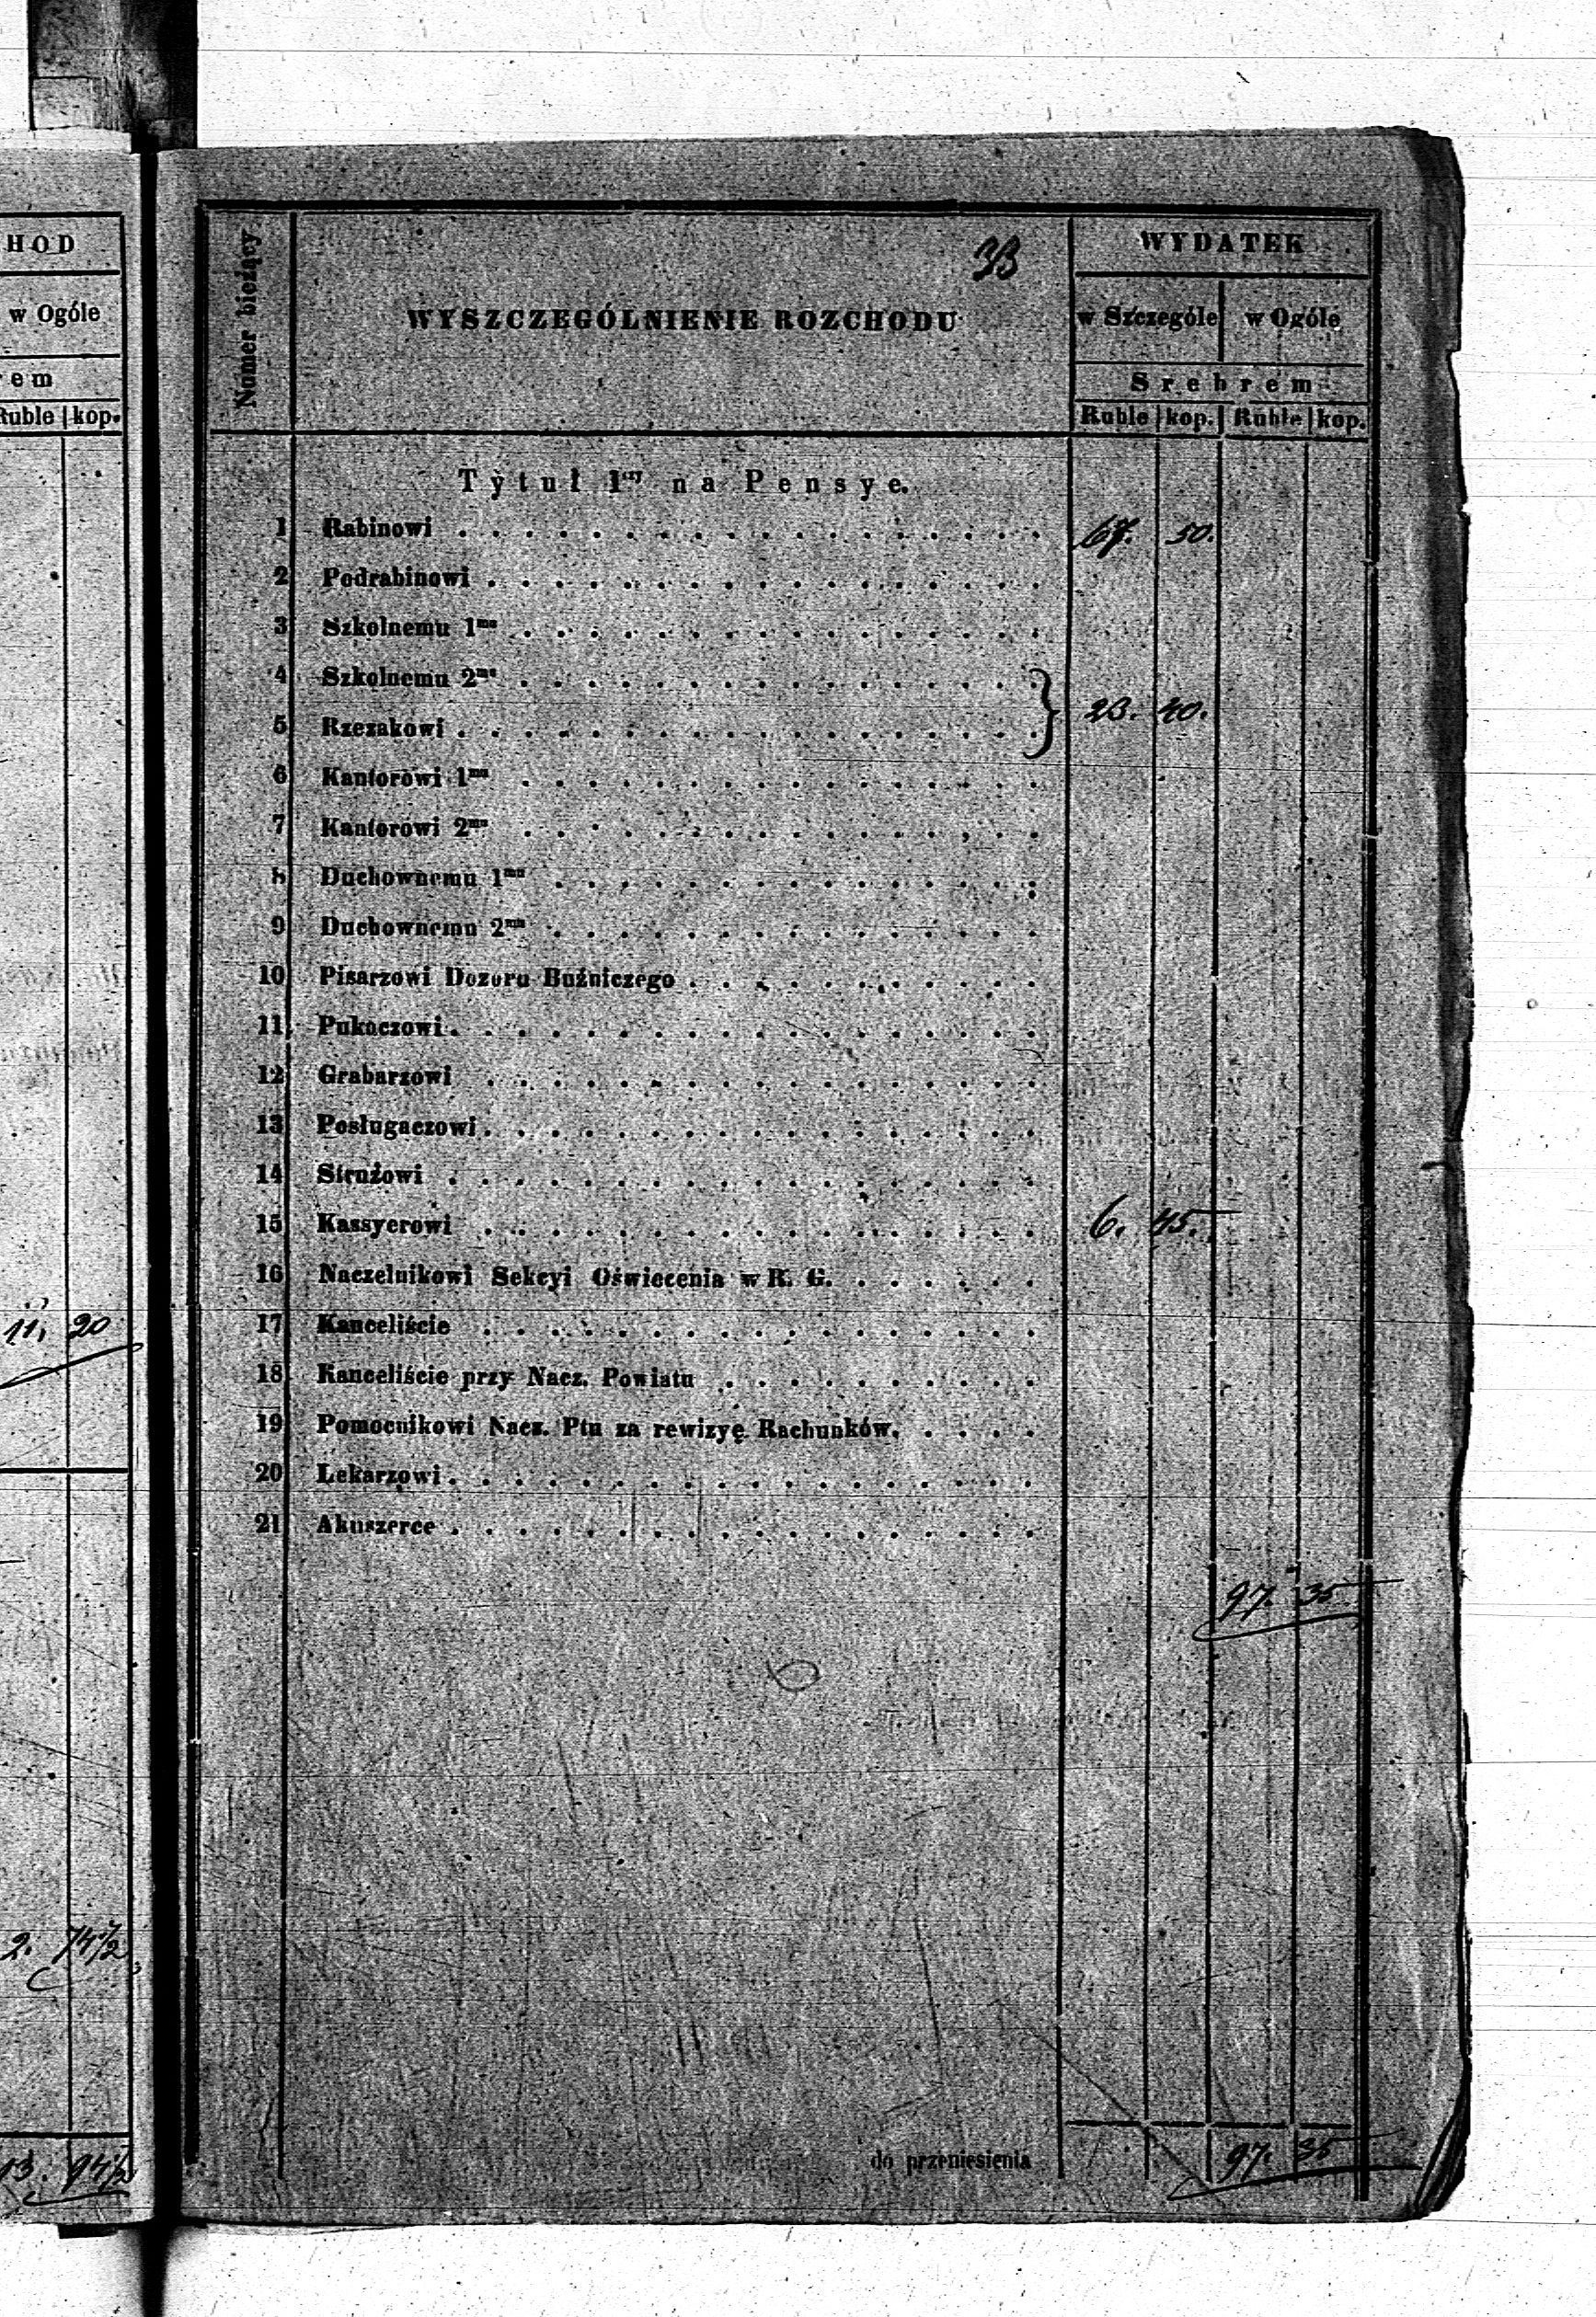 HOD
w Ogóle
em
Ruble kop.
11, 20
2. 74 1/2
13. 94 1/2
33
Numer bieżący
WYSZCZEGÓLNIENIE ROZCHODU
WYDATEK
w Szczególe w Ogóle
Srebrem
Ruble kop. Ruble kop.
Tytuł 1szy na Pensye.
1 Rabinowi 67. 50.
2 Podrabinowi
3 Szkolnemu 1mu
4 Szkolnemu 2mu
} 23. 40.
5 Rzezakowi
6 Kantorowi 1mu
7 Kantorowi 2mu
8 Duchownemu 1mu
9 Duchownemu 2mu
10 Pisarzowi Dozoru Bużniczego
11 Pukaczowi
12 Grabarzowi
13 Posługaczowi
14 Stróżowi
15 Kassyerowi 6. 45.
16 Naczelnikowi Sekcyi Oświecenia w R. G.
17 Kanceliście
18 Kanceliście przy Nacz. Powiatu
19 Pomocnikowi Nacz. Ptu za rewizyę Rachunków.
20 Lekarzowi
21 Akuszerce
97. 35
do przeniesienia 97. 35